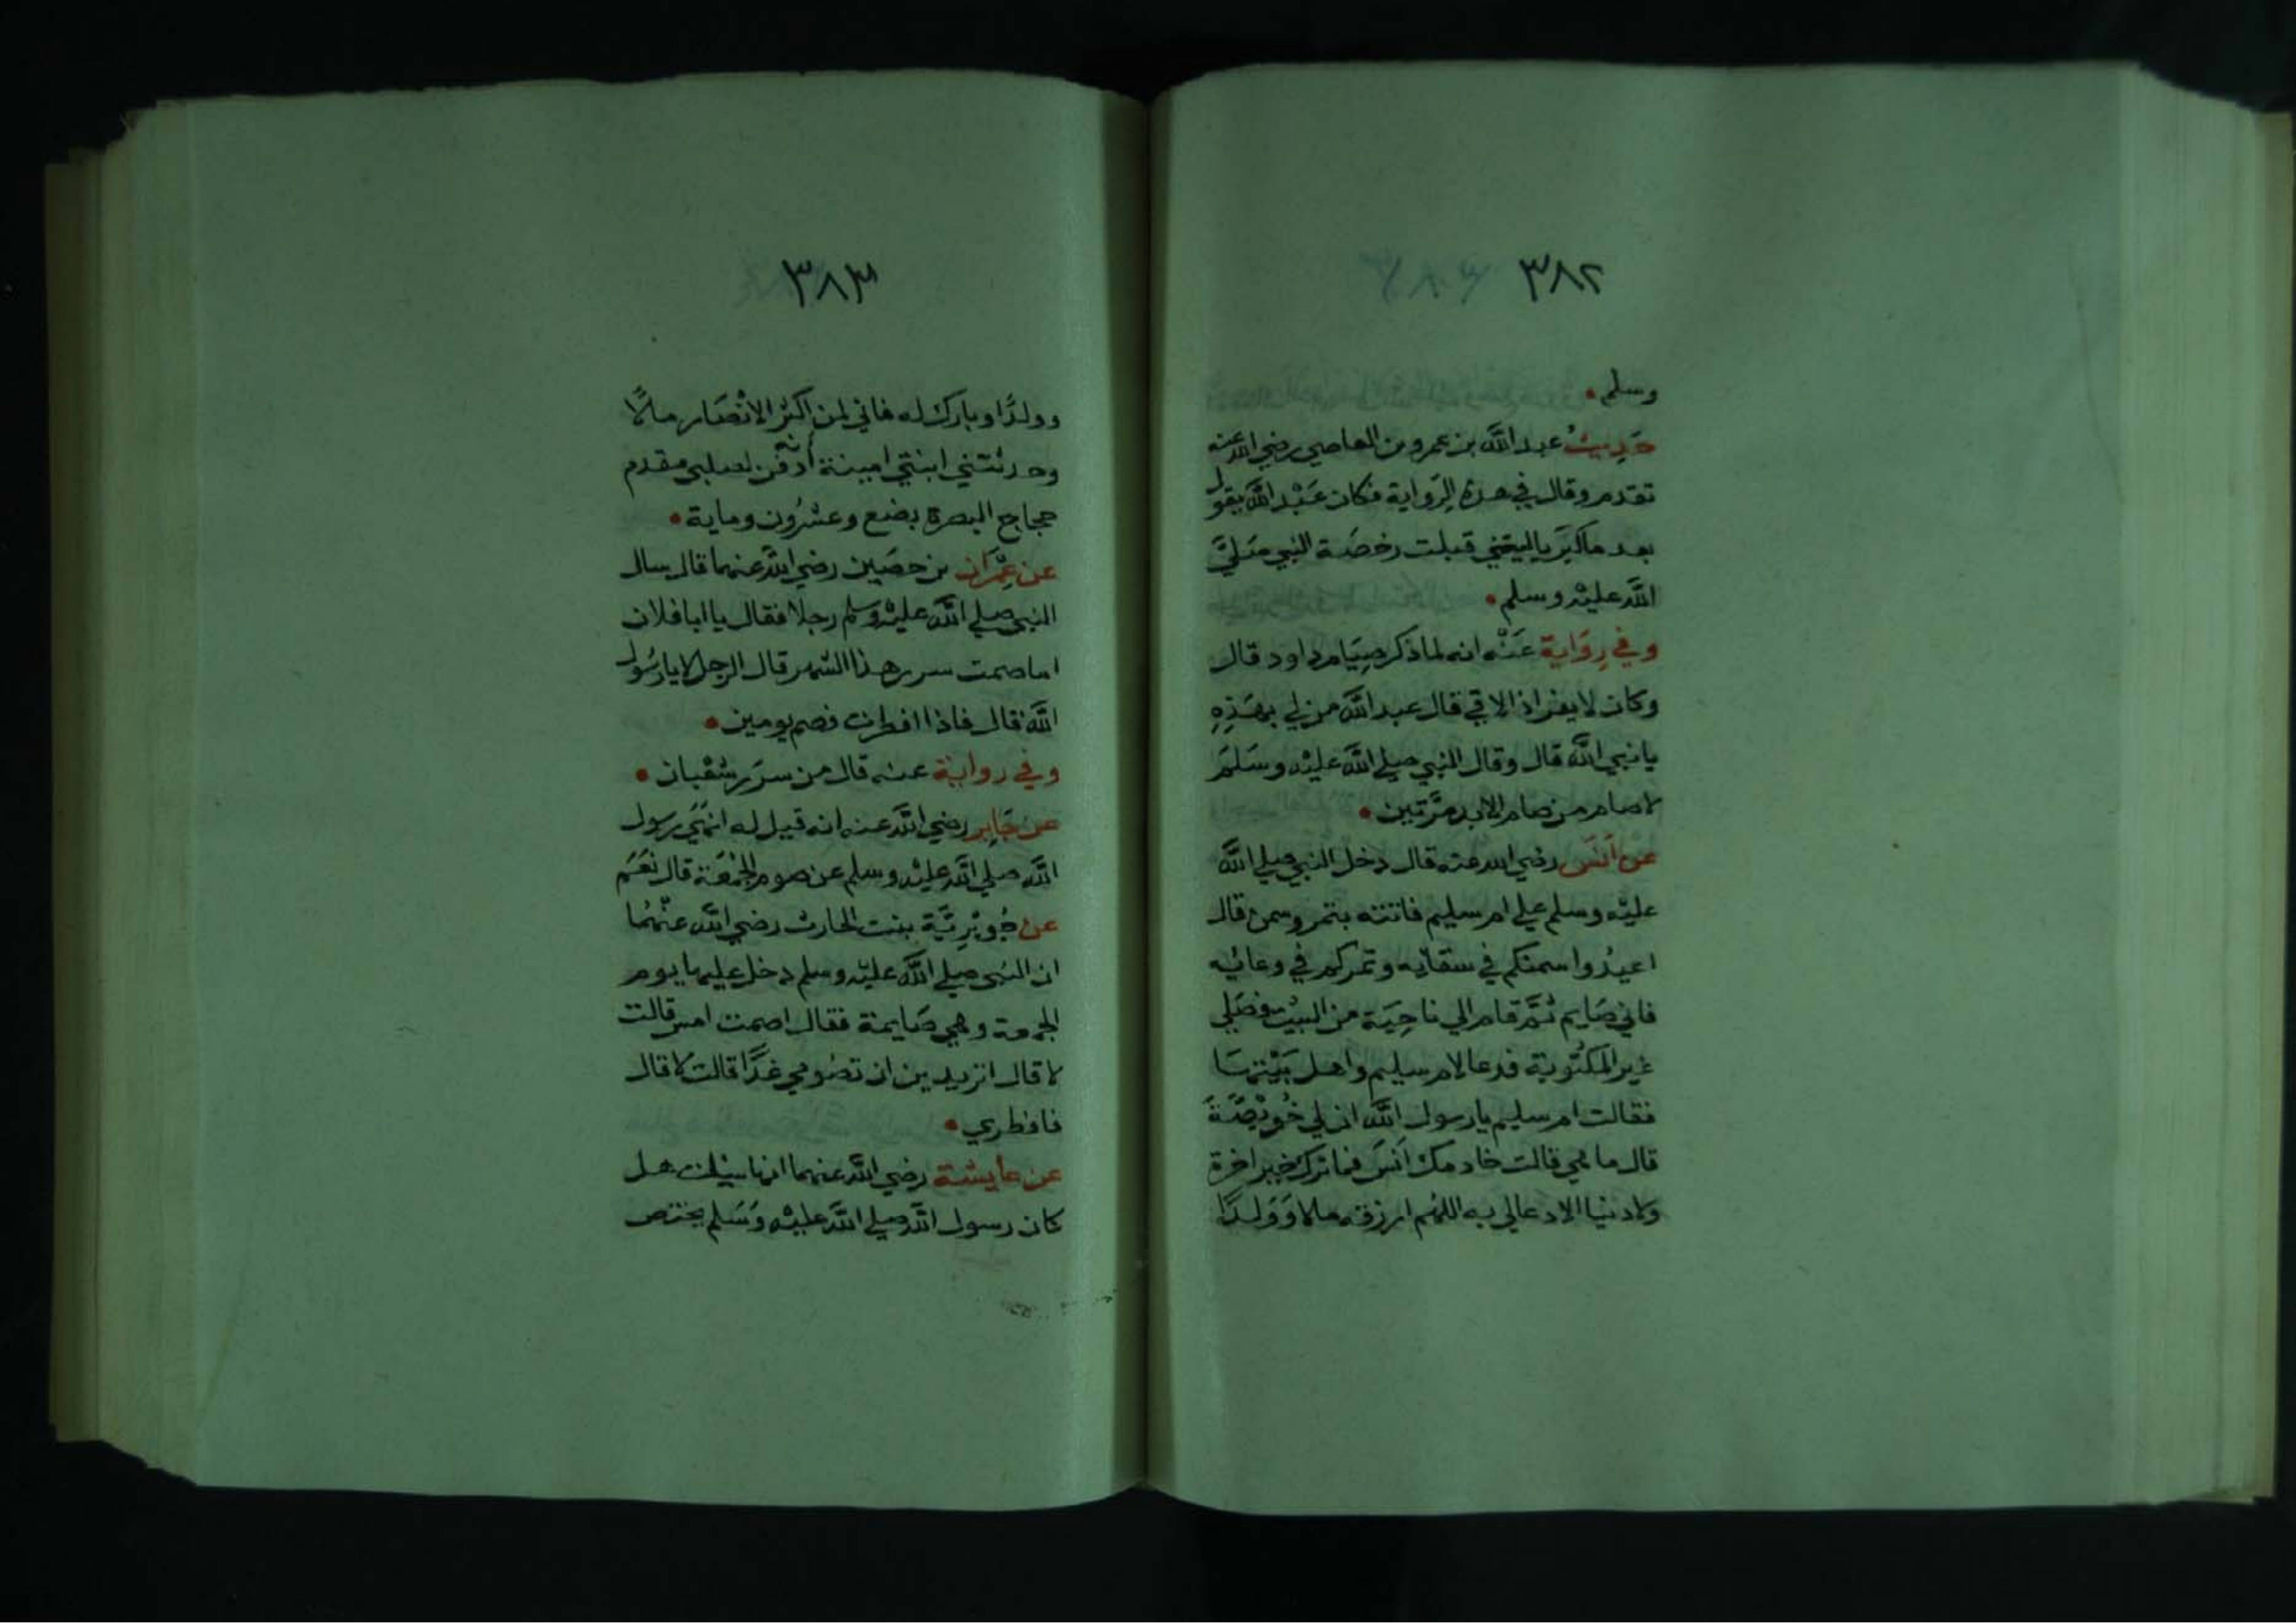 ٣٨٢
وسلم
حَدِيثُ عبد الله بن عمرو بن العاصي رضي الله عنه
تقدم وقال في هذه الرواية فكان عَبْد الله يقول
بعد ماكبر ياليتني قبلت رخصَة النبي صَليَّ
الله عليْه وسلم
وفي رِوَاية عَنْه انه لما ذكر صِيَام داود قال
وكان لا يفر اذا لاقي قال عبد الله من لي بهَذِهِ
يا نبي الله قال وقال النبي صلي الله عليْه وسَلمَ
لا صام من صام الابد مرَّتين
عَنْ اَنَس رضي الله عنه قال دخل النبي صلي الله
عليْه وسلم علي ام سليم فاتته بتمر وسمن قال
اعيدُوا سمنكم في سقايه وتمركم في وعائِه
فاني صَايم ثمَّ قام الي ناحِيَة من البيْت فصَلي
غير المكتُوبة فدعا لام سليم واهل بَيْتهَا
فقالت ام سليم يا رسول الله ان لي خُوَيْصَّةً
قال ما هي قالت خادمك اَنَس فما ترك خير اخرة
ولا دنيا الا دعالي به اللهُم ارزقه مالا وَوَلدًا
٣٨٣
وولدًا وبارك له فاني لمن اكثر الانْصَار مالًا
وحدثتني ابنتي امينة أنه دفن لصلبي مقدم
حجاج البصرة بضع وعشرُون وماية
عن عِمْرَان بن حصَين رضي الله عنهما قال سال
النبي صلي الله عليْه وَسلم رجلا فقال يا ابا فلان
اما صمت سرر هذا الشهر قال الرجل لا يا رسُول
الله قال فاذا افطرت فصم يومين
وفي رواية عنه قال من سرَر شعْبان
عن جَابِر رضي الله عنه انه قيل له انهَي رسول
الله صلي الله عليْه وسلم عن صوم الجُمْعَة قال نعَمَ
عن جُوَيْرِيَّة بنت الحارث رضي الله عنْهُمَا
ان النبي صلي الله عليْه وسلم دخل عليها يوم
الجمعة وهي صَايمة فقال اصمت امس قالت
لا قال اتريدين ان تصُومي غدًا قالت لا قال
فافطري
عن عايشة رضي الله عنهما انها سيلت هل
كان رسول الله صلي الله عليْه وَسَلم يختص